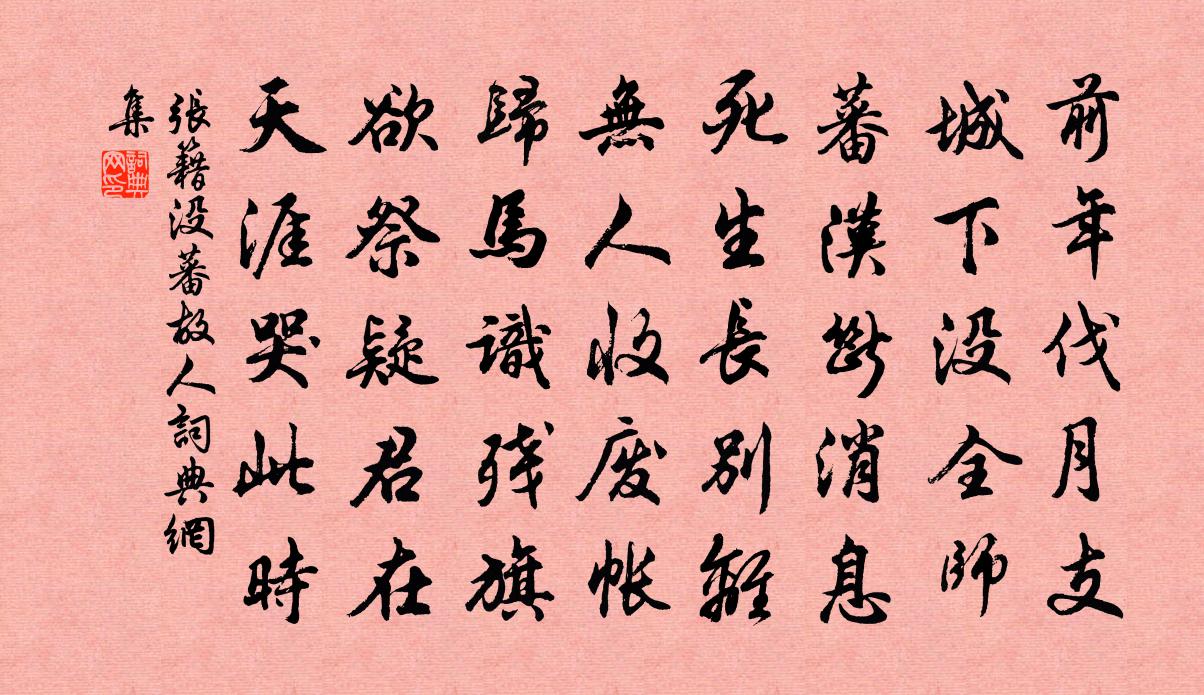 前年伐月支
城下没全師
蕃漢斷消息
死生長別離
無人收废帳
歸馬識残旗
欲祭疑君在
天涯哭此時
張籍没蕃故人詞典網
集
詞典网印